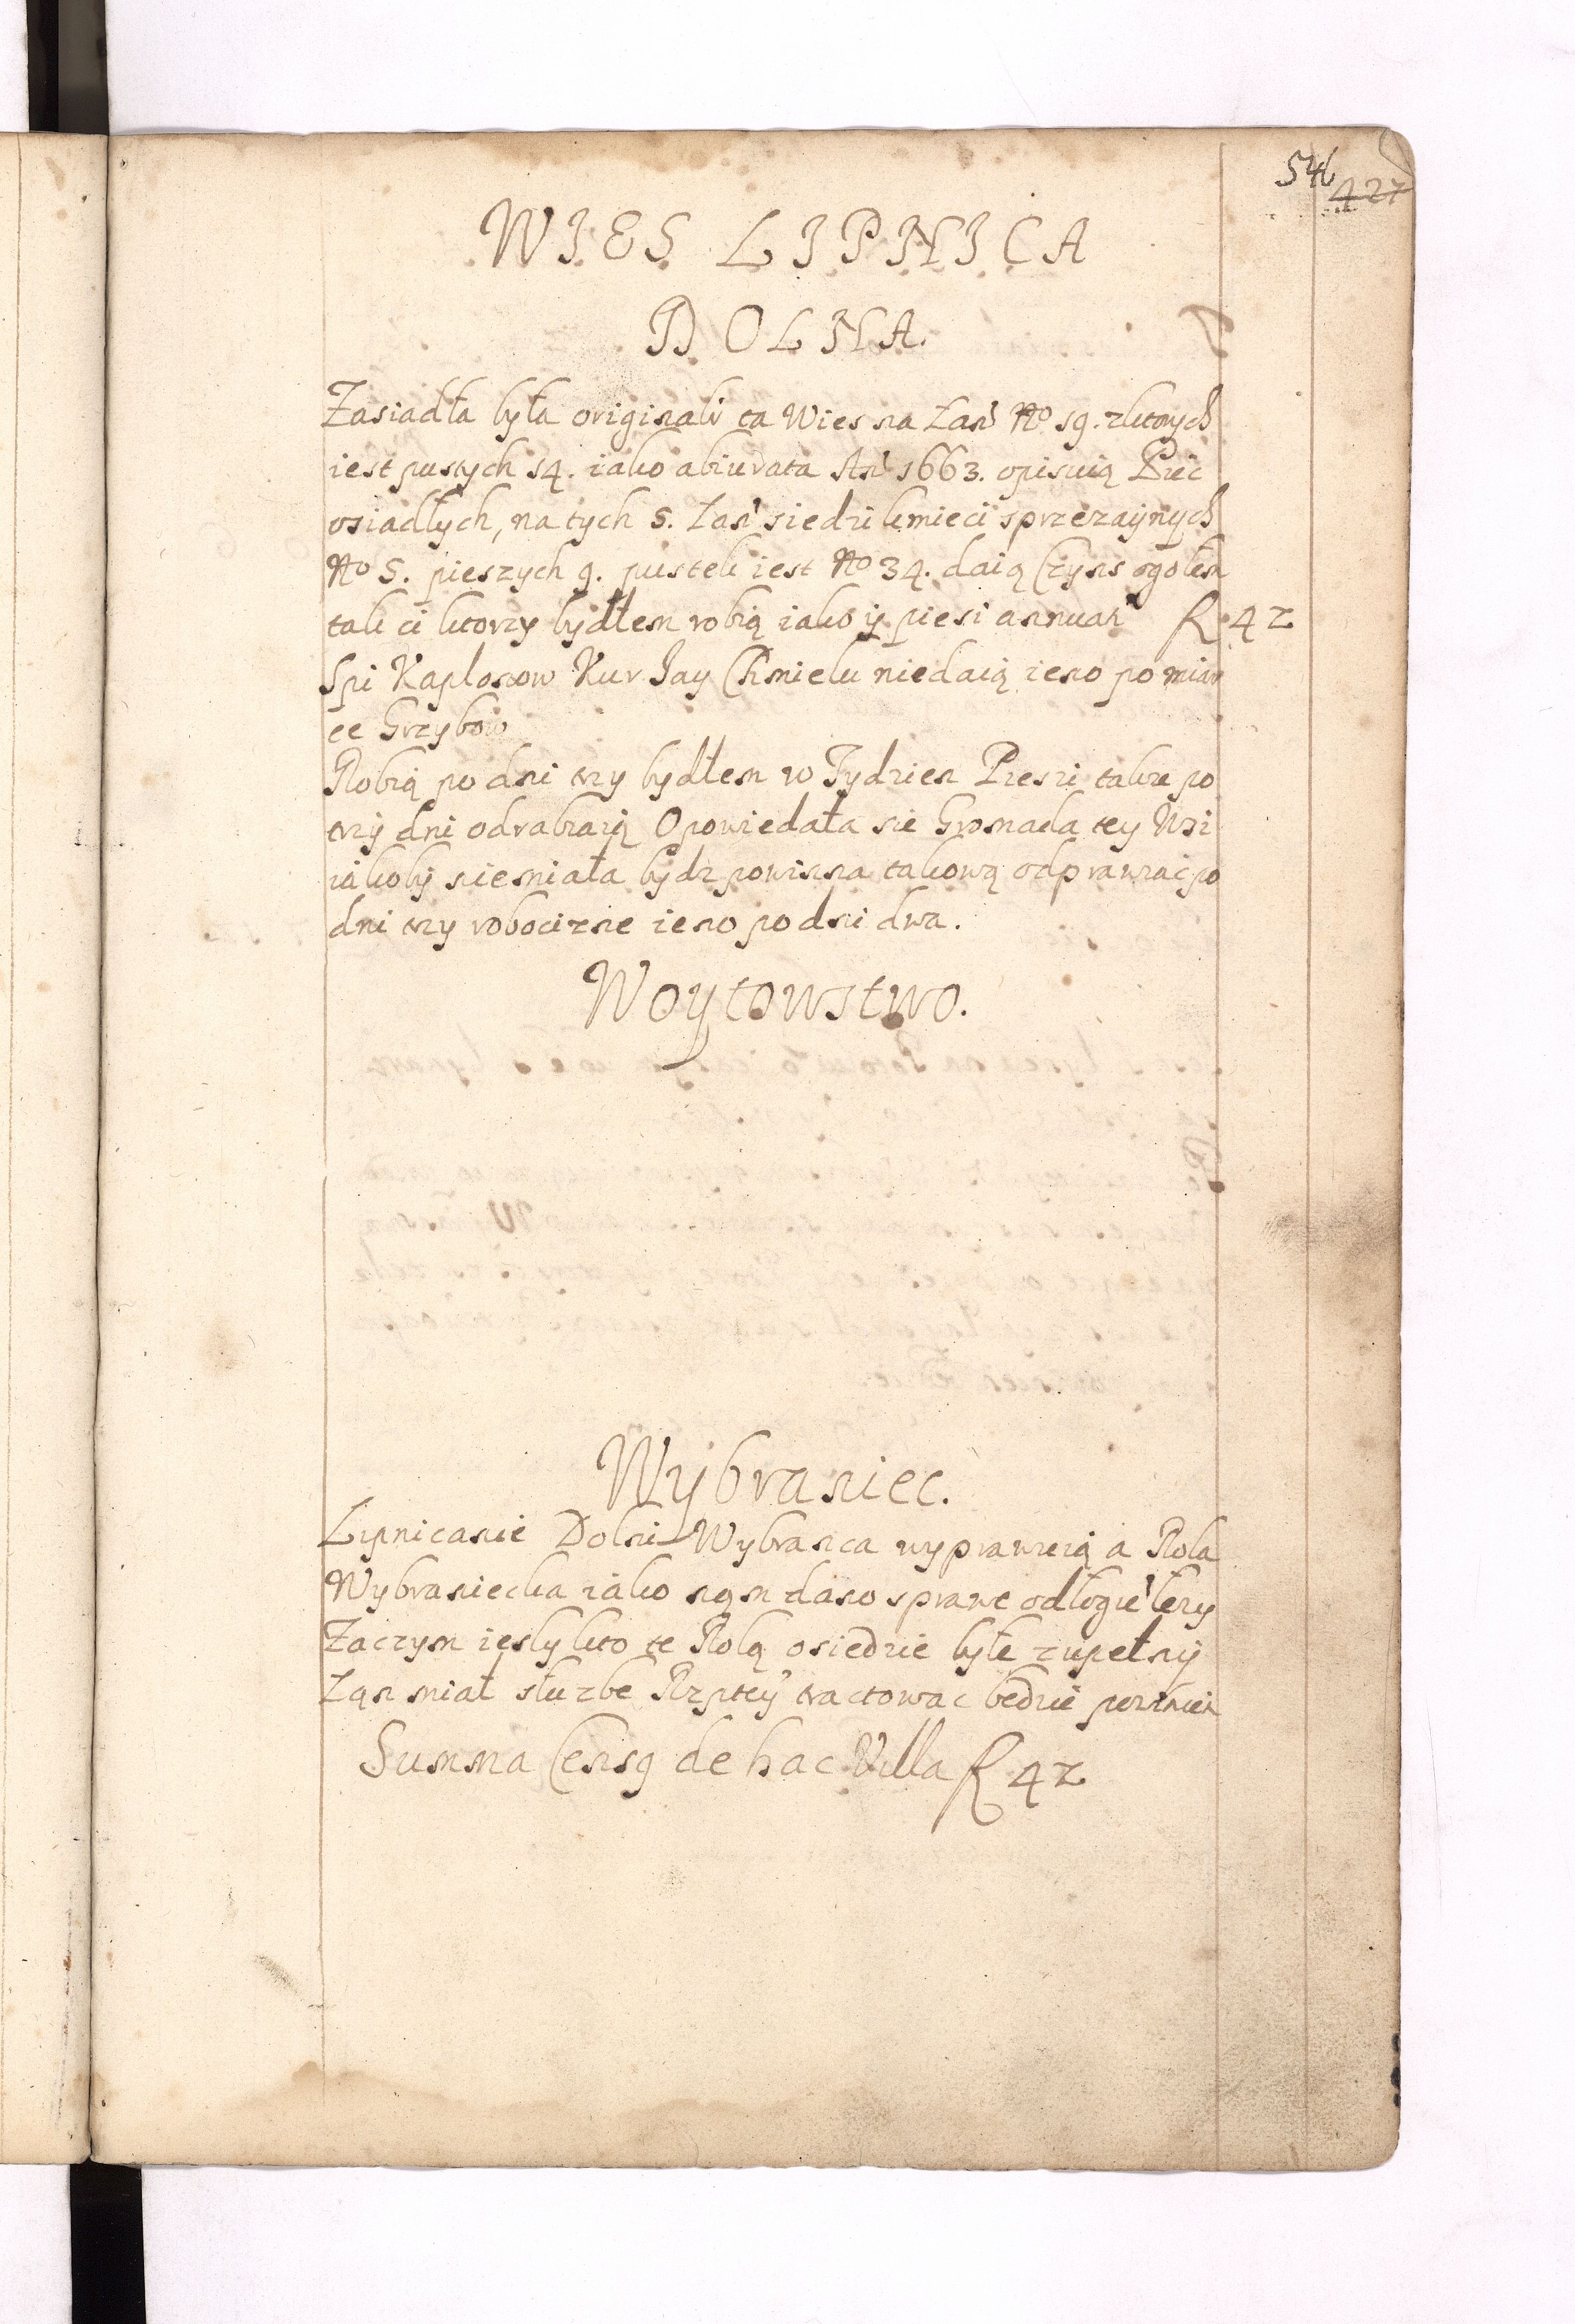 546
427
WIES LIPNICA
DOLNA.
Zasiadła była originali ta Wies na Łan No 19. zktorych
iest pustych 14. iako abiurata An 1663. opisuią Pięc
osiadłych, na tych 5. Łan siedzi kmieci sprzezaynych
No 5. pieszych 9. pustek iest No 34. daią Czyns ogołem
tak ci ktorzy bydłem robią iako y piesi annuat f 42
Spi Kapłonow Kur Jay Chmielu niedaią ieno po miar
ce Grzybow
Robią po dni trzy bydłem w Tydzien Pieszi takze po
trzy dni odrabiaią Opowiedała sie Gromada tey Wsi
iakoby niemiała bydz powinna takową odprawiac po
dni trzy robocizne ieno po dni dwa.
Woytowstwo.
Wybraniec.
Lipnicanie Dolni Wybranca wyprawuią a Rola
Wybraniecka iako nam dano sprawe odłogie lezy
Zaczym iesly kto te Rolą osiedzie byle zupełny
Łan miał słuzbe Rzptey tractowac bedzie powinien
Summa Censq de hac Villa f 42